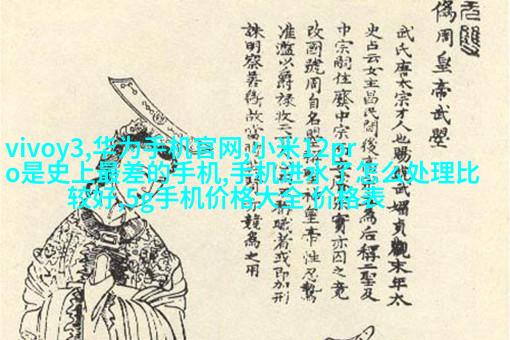 vivoy3,华为手机官网,小米12pr
o是史上最差的手机,手机进水了怎么处理比
较好,5g手机价格大全 价格表
偽周皇帝武曌
武氏唐太宗才人也賜號武媚貞觀末年太
史占云女主昌民間後為后稱二聖及
中宗嗣位廢中宗實亦因之竟
改國號周自名曌帝性忍鷙
濫以爵祿收職者或即加刑
誅明察善斷故當時競為之用